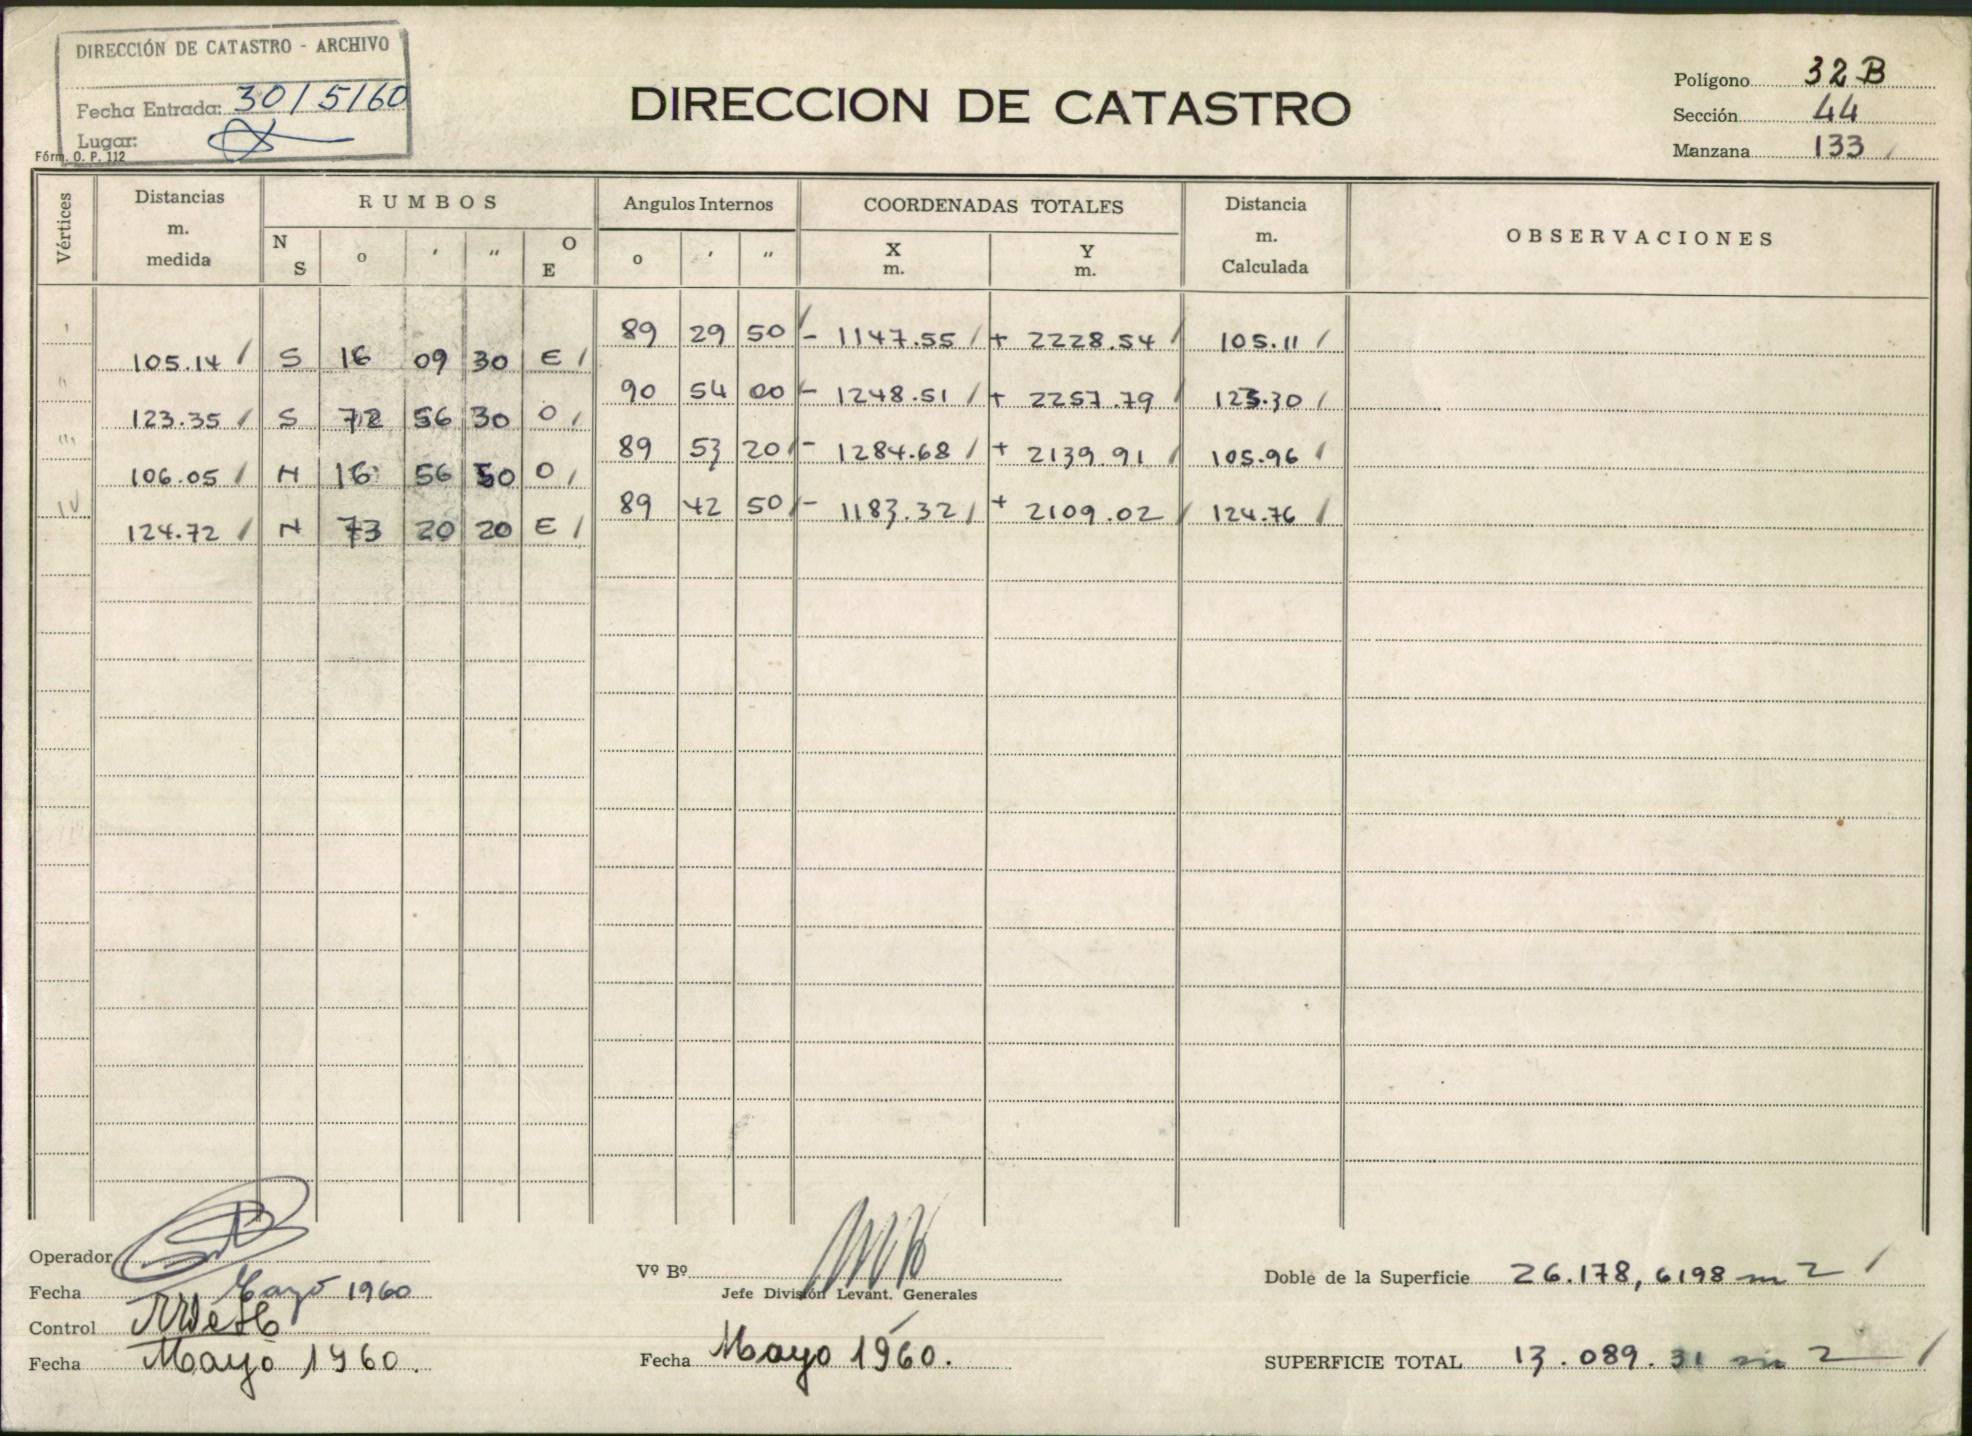 DIRECCIÓN DE CATASTRO - ARCHIVO
Fecha Entrada: 30/5/60
Lugar:
Fórm. O. P. 112
DIRECCION DE CATASTRO
Polígono 32 B
Sección 44
Manzana 133
Vértices Distancias m. medida RUMBOS Angulos Internos COORDENADAS TOTALES Distancia m. Calculada OBSERVACIONES
N S o ' " O E o ' " X m. Y m.
I 89 29 50 - 1147.55 + 2228.54 105.11
105.14 S 16 09 30 E
II 90 54 00 - 1248.51 + 2257.79 123.30
123.35 S 72 56 30 O
III 89 53 20 - 1284.68 + 2139.91 105.96
106.05 N 16 56 50 O
IV 89 42 50 - 1183.32 + 2109.02 124.76
124.72 N 73 20 20 E
Operador
Fecha Mayo 1960
Control
Fecha Mayo 1960.
Vº Bº
Jefe División Levant. Generales
Fecha Mayo 1960.
Doble de la Superficie 26.178,6198 m 2
SUPERFICIE TOTAL 13.089.31 m 2